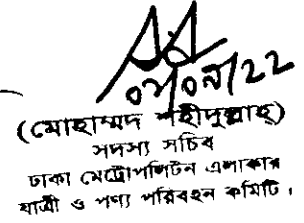 ০৭/০৯/২২
(মোহাম্মদ শহীদুল্লাহ্)
সদস্য সচিব
ঢাকা মেট্রোপলিটন এলাকার
যাত্রী ও পণ্য পরিবহন কমিটি।